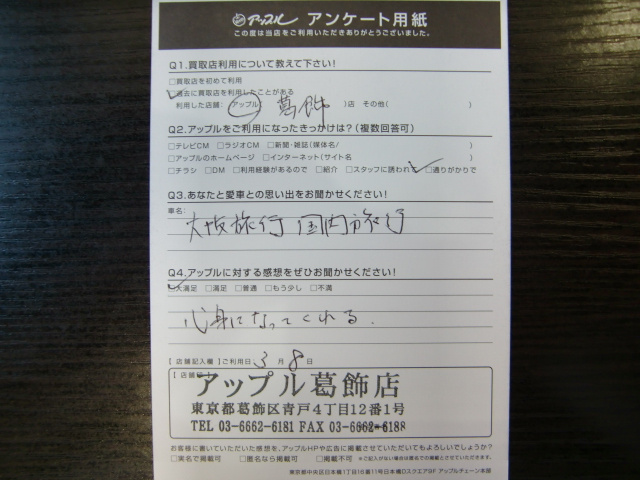 アップル アンケート用紙
この度は当店をご利用いただきありがとうございました。
Q1.買取店利用について教えて下さい!
□買取店を初めて利用
□過去に買取店を利用したことがある
利用した店舗:アップル( 葛飾 )店 その他( )
Q2.アップルをご利用になったきっかけは?(複数回答可)
□テレビCM □ラジオCM □新聞・雑誌(媒体名/ )
□アップルのホームページ □インターネット(サイト名 )
□チラシ □DM □利用経験があるので □紹介 □スタッフに誘われ □通りがかりで
Q3.あなたと愛車との思い出をお聞かせください!
車名:
大阪旅行 国内旅行
Q4.アップルに対する感想をぜひお聞かせください!
□大満足 □満足 □普通 □もう少し □不満
心身になってくれる.
【店舗記入欄】ご利用日 3 月 8 日
【店舗
アップル葛飾店
東京都葛飾区青戸4丁目12番1号
TEL 03-6662-6181 FAX 03-6662-6188
お客様に書いていただいた感想を、アップルHPや広告に掲載させていただいてもよろしいでしょうか?
□実名で掲載可 □匿名なら掲載可 □掲載不可 ※ご記入がない場合は匿名での掲載とさせていただきます。
東京都中央区日本橋1丁目16番11号日本橋Dスクエア3F アップルチェーン本部